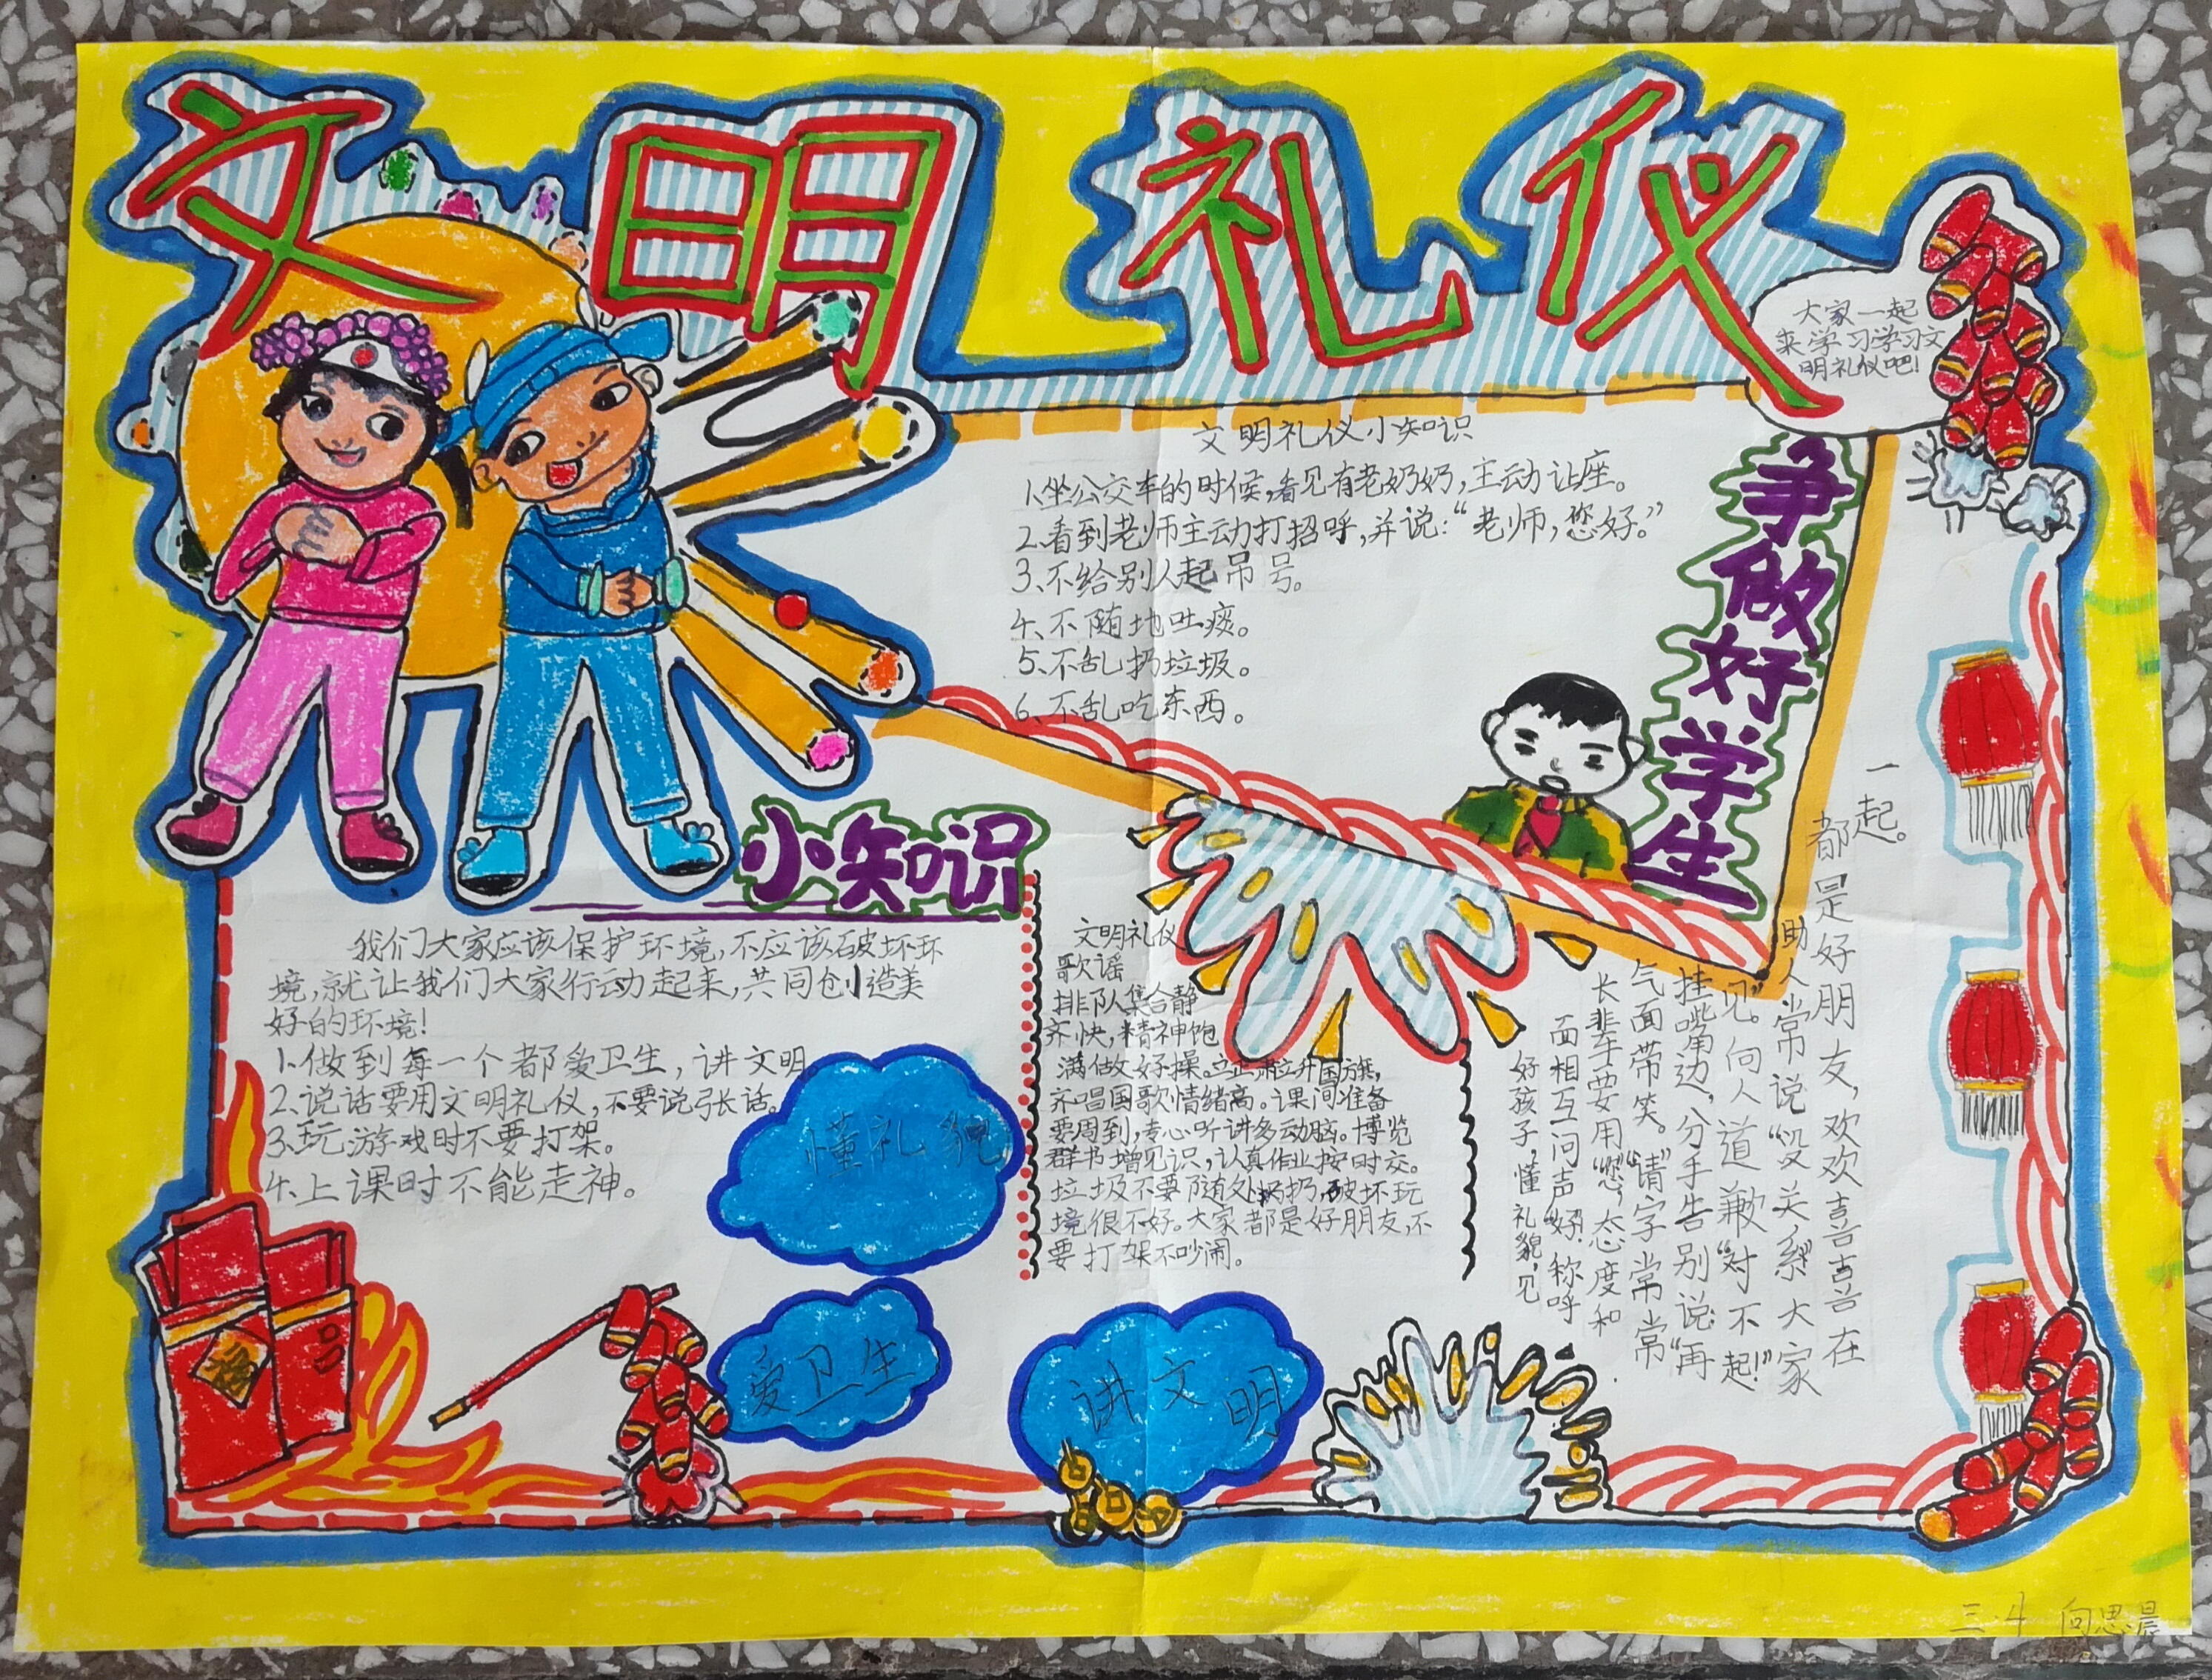 文明礼仪
大家一起
来学习学习文
明礼仪吧!
文明礼仪小知识
1.坐公交车的时候,看见有老奶奶,主动让座。
2.看到老师主动打招呼,并说:“老师,您好。”
3、不给别人起吊号。
4、不随地吐痰。
5、不乱扔垃圾。
6、不乱吃东西。
争做好学生
小知识
我们大家应该保护环境,不应该破坏环
境,就让我们大家行动起来,共同创造美
好的环境!
1.做到每一个都爱卫生,讲文明。
2、说话要用文明礼仪,不要说张话。
3、玩游戏时不要打架。
4、上课时不能走神。
懂礼貌
爱卫生
讲文明
文明礼仪
歌谣
排队集合静
齐快,精神饱
满做好操。立正肃立升国旗,
齐唱国歌情绪高。课间准备
要周到,专心听讲多动脑。博览
群书增见识,认真作业按时交。
垃圾不要随处扔,破坏玩
境很不好。大家都是好朋友,不
要打架不吵闹。
好孩子,懂礼貌,见
面相互问声“好”。称呼
长辈要用“您”,态度和
气面带笑。“请”字常常
挂嘴边,分手告别说:“再
见”。向人道歉“对不起!”
助人常说“没关系”大家
都是好朋友,欢欢喜喜在
一起。
三.4 向思晨